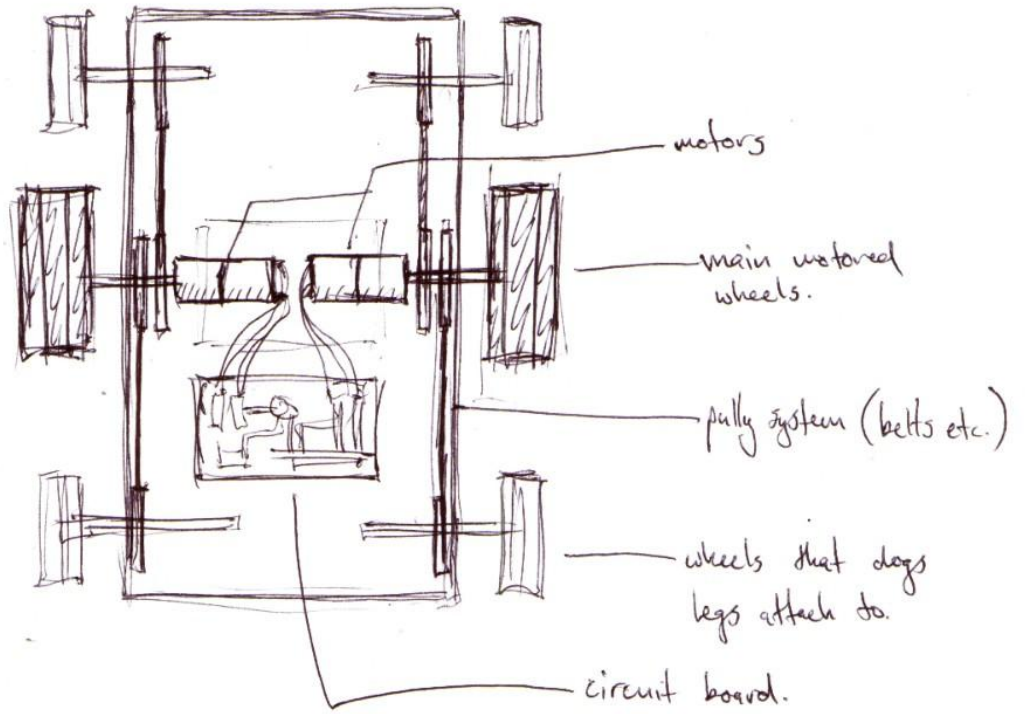 motors
main motored
wheels.
pully system (belts etc.)
wheels that dogs
legs attach to.
circuit board.